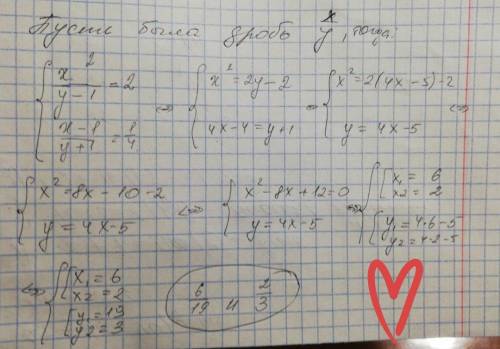 Пусть была дробь x/y, тогда:
{ x²/(y-1) = 2 ; (x-1)/(y+1) = 1/4 ⇔ { x² = 2y-2 ; 4x-4 = y+1 ⇔ { x² = 2(4x-5)-2 ; y = 4x-5 ⇔
{ x² = 8x-10-2 ; y = 4x-5 ⇔ { x²-8x+12=0 ; y = 4x-5 ⇔ { [ x₁ = 6 ; x2 = 2 ; [ y₁ = 4·6-5 ; y2 = 4·2-5
⇔ { [ x₁ = 6 ; x2 = 2 ; [ y₁ = 19 ; y2 = 3 6/19 и 2/3